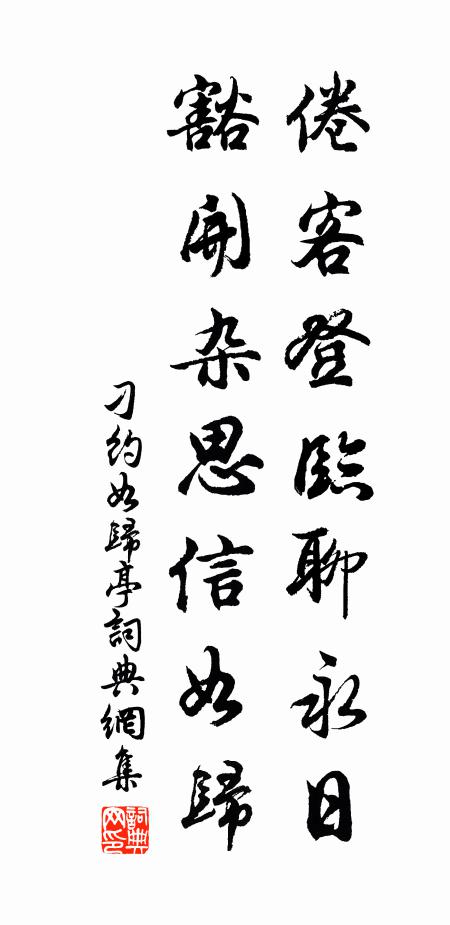 倦客登臨聊永日
豁開杂思信如歸
刁約如歸亭詞典網集
詞典网印